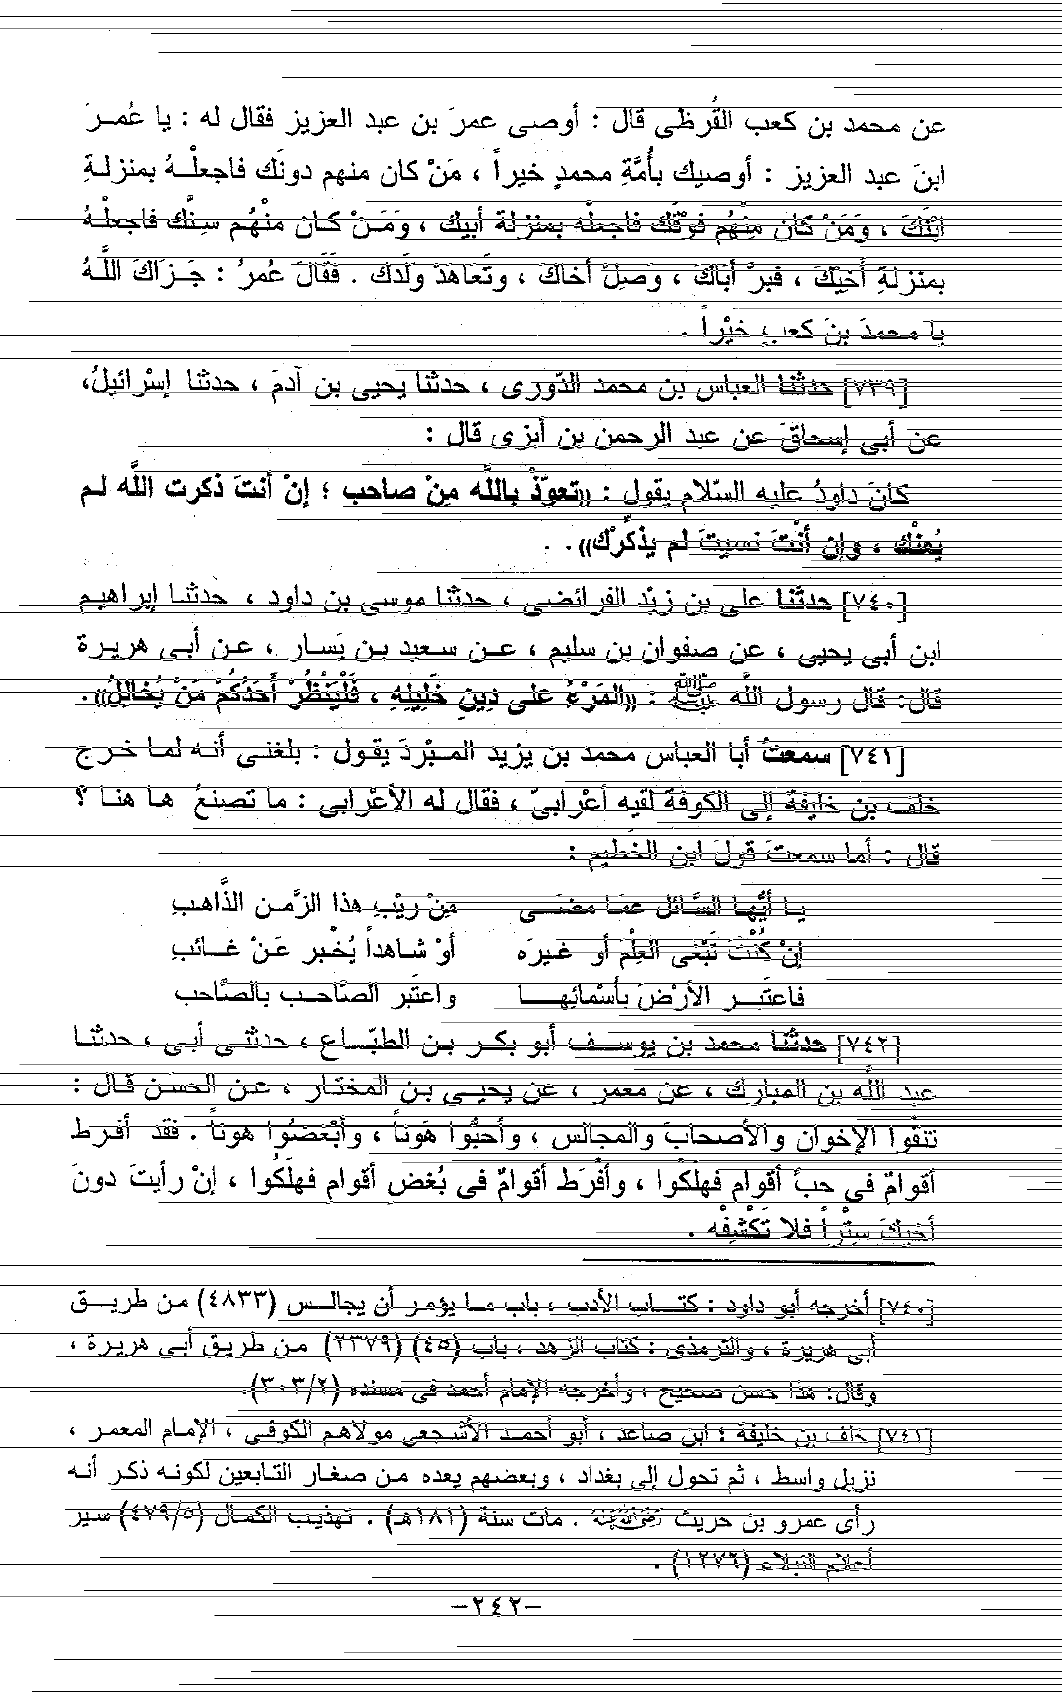 عن محمد بن كعب القُرظى قال : أوصى عمرَ بن عبد العزيز فقال له : يا عُمـرَ
ابنَ عبد العزيز : أوصيك بأُمَّةِ محمدٍ خيراً ، مَنْ كان منهم دونَك فاجعلْـهُ بمنزلـةِ
ابْنَكَ ، وَمَنْ كان مِنْهُم فَوْقَك فاجعلْه بمنزلة أبيك ، ومَـنْ كـان منْهُـم سِنَّك فاجعلْـهُ
بمنزلةِ أَخيْكَ ، فبرْ أباكَ ، وصِلْ أخاكَ ، وتَعاهدْ ولَدك . فَقَالَ عُمرُ : جَـزاكَ اللَّـهُ
يا محمدَ بنَ كعبٍ خيْراً .
[٧٣٩] حدثنا العباس بن محمد الدّورى ، حدثنا يحيى بن آدمَ ، حدثنا إسْرائيلُ،
عن أبى إسحاقَ عن عبد الرحمن بن أبزى قال :
كانَ داودُ عليه السّلام يقول : «تعوّذْ باللَّه مِنْ صاحب ؛ إنْ أنتَ ذكرت اللَّه لـم
يُعنْك ، وإن أنْتَ نسيتَ لم يذكِّرْك» .
[٧٤٠] حدثنا على بن زيْد الفرائضى ، حدثنا موسى بن داود ، حدثنـا إبراهيـم
ابن أبى يحيى ، عن صفوان بن سليم ، عـن سـعيد بـن يَسـار ، عـن أبـى هريـرة
قال: قال رسول اللَّه ﷺ : «المَرْءُ على دِينِ خَلِيلِهِ ، فَلْيَنْظُرْ أَحَدُكُمْ مَنْ يُخَالِلُ» .
[٧٤١] سمعتُ أبا العباس محمد بن يزيد المـبْردَ يقـول : بلغنـى أنـه لمـا خـرج
خلف بن خليفة إلى الكوفة لقيه أعْرابىّ ، فقال له الأعْرابى : ما تصنعُ هـا هنـا ؟
قال : أما سمعتَ قولَ ابن الخطيم :
يـا أيُّهـا السَّائل عمّـا مضـى مِنْ ريْبِ هذا الزَّمـن الذَّاهبِ
إنْ كُنْتَ تَبْغى العِلْمَ أو غـيرَه أوْ شـاهداً يُخْـبر عَـنْ غـائب
فاعتَبـر الأرْضَ بأسْمائِهـا واعتَبر الصَّاحـب بالصَّاحب
[٧٤٢] حدثنا محمد بن يوسـف أبو بكـر بـن الطبّـاع ، حدثنـى أبـى ، حدثنـا
عبد اللَّه بن المبارك ، عن معمر ، عن يحيـى بـن المختـار ، عـن الحسـن قـال :
تنقّوا الإخوان والأصحابَ والمجالس ، وأحبُّوا هَوْناً ، وأبْغضُوا هوناً . فقد أفـرط
أقوامٌ فى حبّ أقوام فهلَكوا ، وأفْرَط أقوامٌ فى بُغض أقوام فهلَكُوا ، إنْ رأيتَ دونَ
أخيكَ ستْراً فلا تكْشفْه .
[٧٤٠] أخرجه أبو داود : كتـاب الأدب ، باب مـا يؤمر أن يجالـس (٤٨٣٣) من طريـق
أبى هريرة ، والترمذى : كتاب الزهد ، باب (٤٥) (٢٣٧٩) من طريق أبـى هريرة ،
وقال: هذا حسن صحيح ، وأخرجه الإمام أحمد فى مسنده (٣٠٣/٢).
[٧٤١] خلف بن خليفة : ابن صاعد ، أبو أحمـد الأشجعى مولاهـم الكوفـى ، الإمـام المعمر ،
نزيل واسط ، ثم تحول إلى بغداد ، وبعضهم يعده مـن صغار التابعين لكونـه ذكـر أنـه
رأى عمرو بن حريث رضي الله عنه . مات سنة (١٨١هـ) . تهذيب الكمال (٤٧٩/٥) سير
أعلام النبلاء (١٢٧٦) .
-٢٤٢-